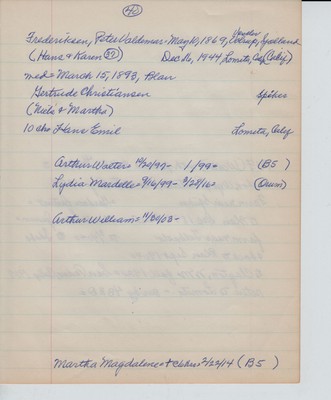 40
Frederiksen, Peter Valdemar - May 10, 1869, Ostrup, Sjælland
(Hans & Karen 39) Dec 16, 1944 Lomita, Calif
med = March 15, 1893, Blair
Gertrude Christiansen
(Niels & Martha)
10 chs Hans Emil Lomita, Calif
Arthur Walter = 12/20/97 - 1/99 - (BS)
Lydia Mardelle = 9/16/99 -
Arthur William = 4/20/03 -
Martha Magdalene = 2/22/14 (BS)